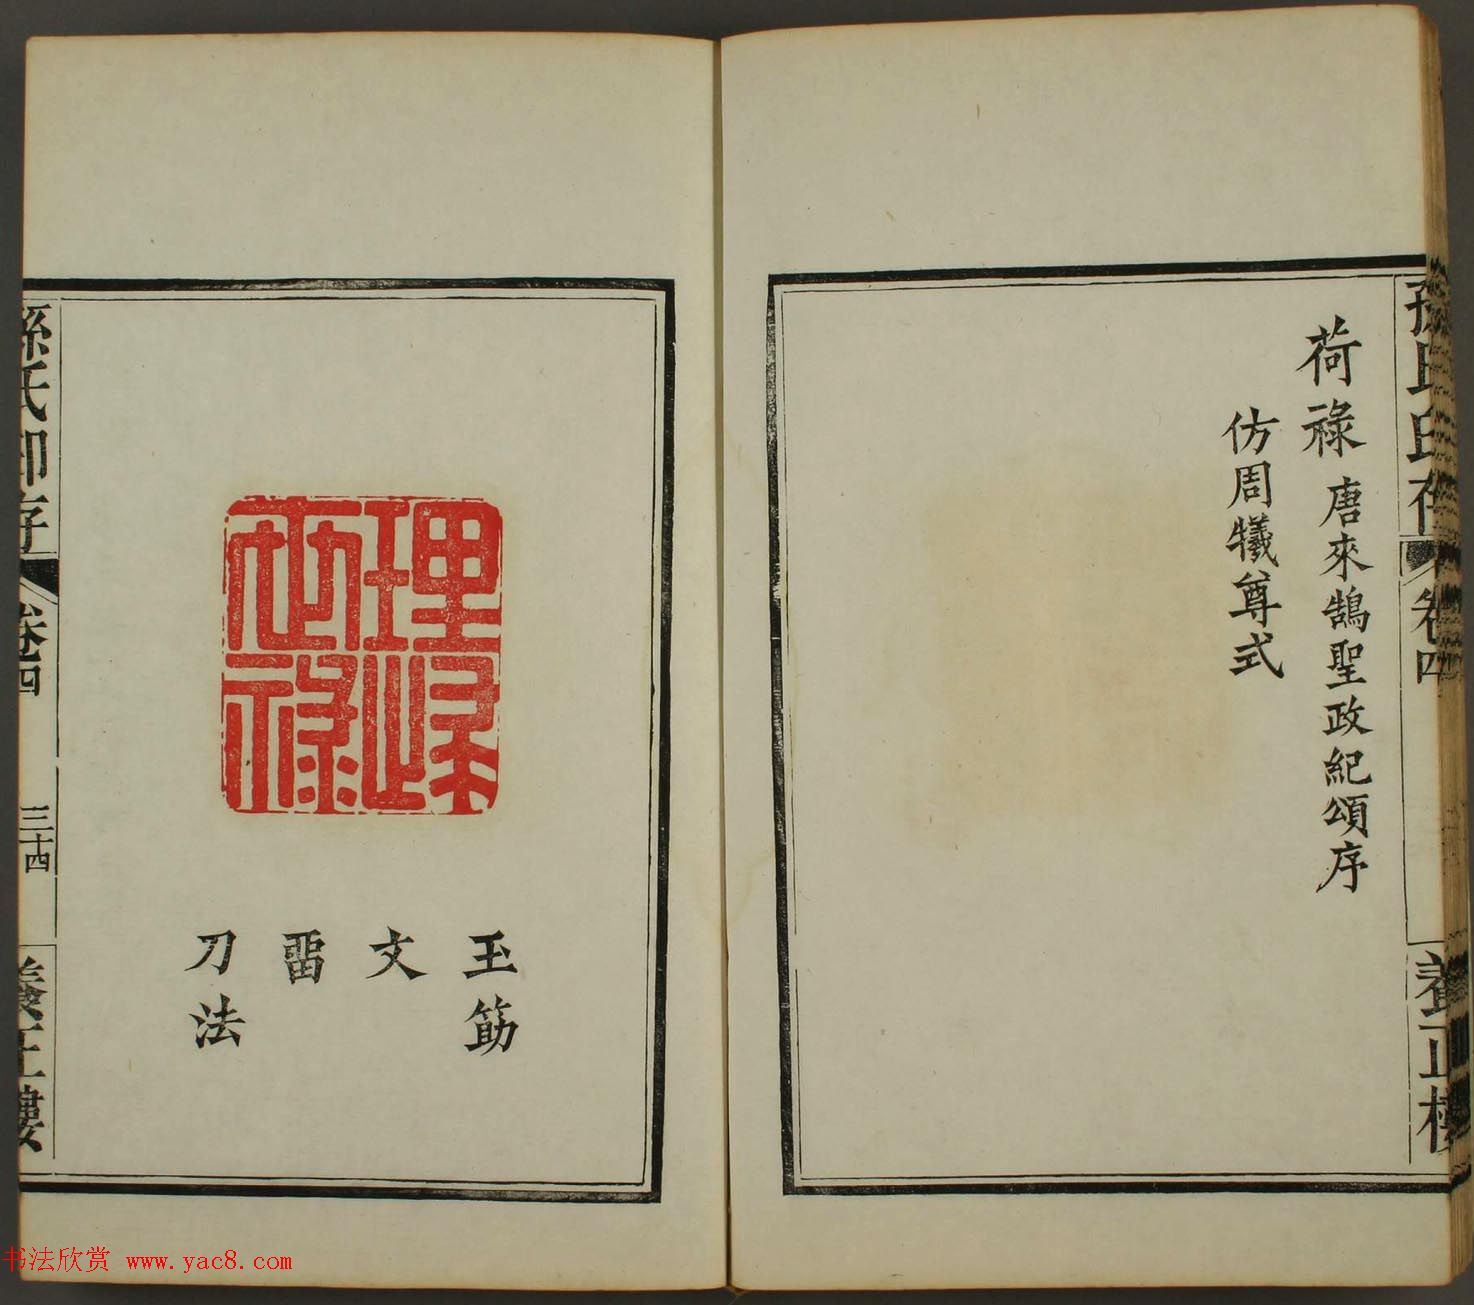 孫氏印存
卷四
養正樓
荷祿 唐來鵠聖政紀頌序
仿周犧尊式
理歸
祿
玉筯
文
畱
刀法
孫氏印存
卷四
三十四
養正樓
书法欣赏 www.yac8.com